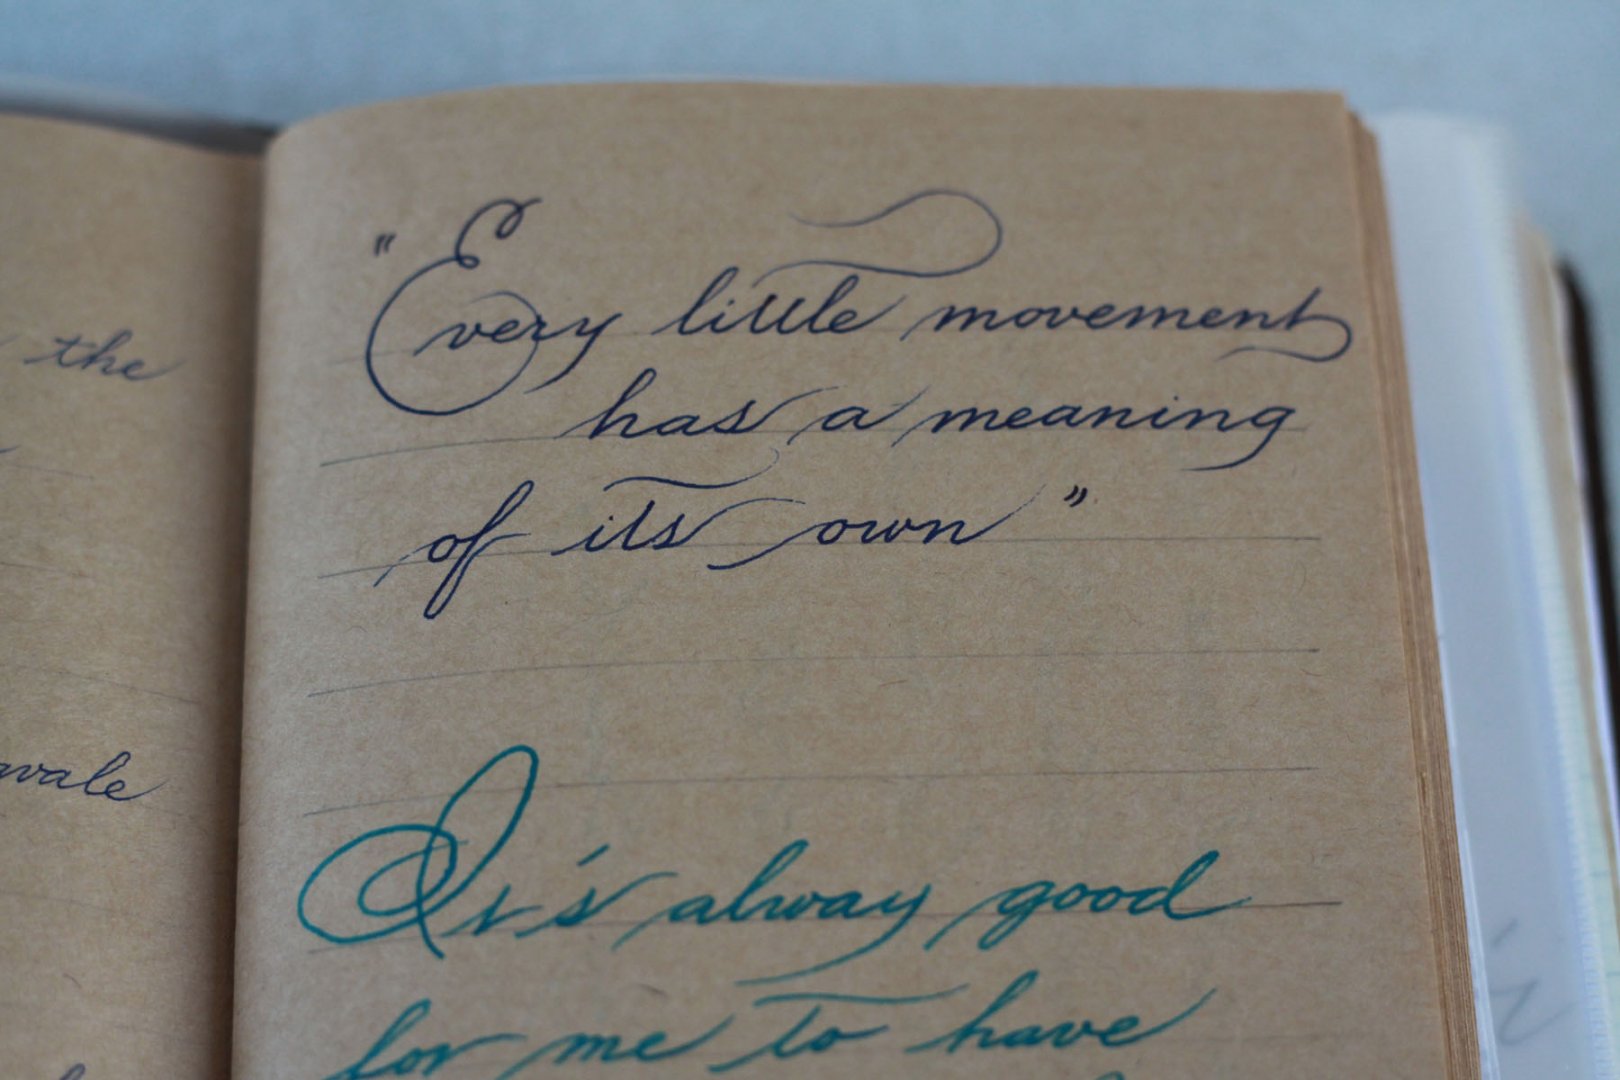 the
"Every little movement
has a meaning
of its own"
It's alway good
for me to have